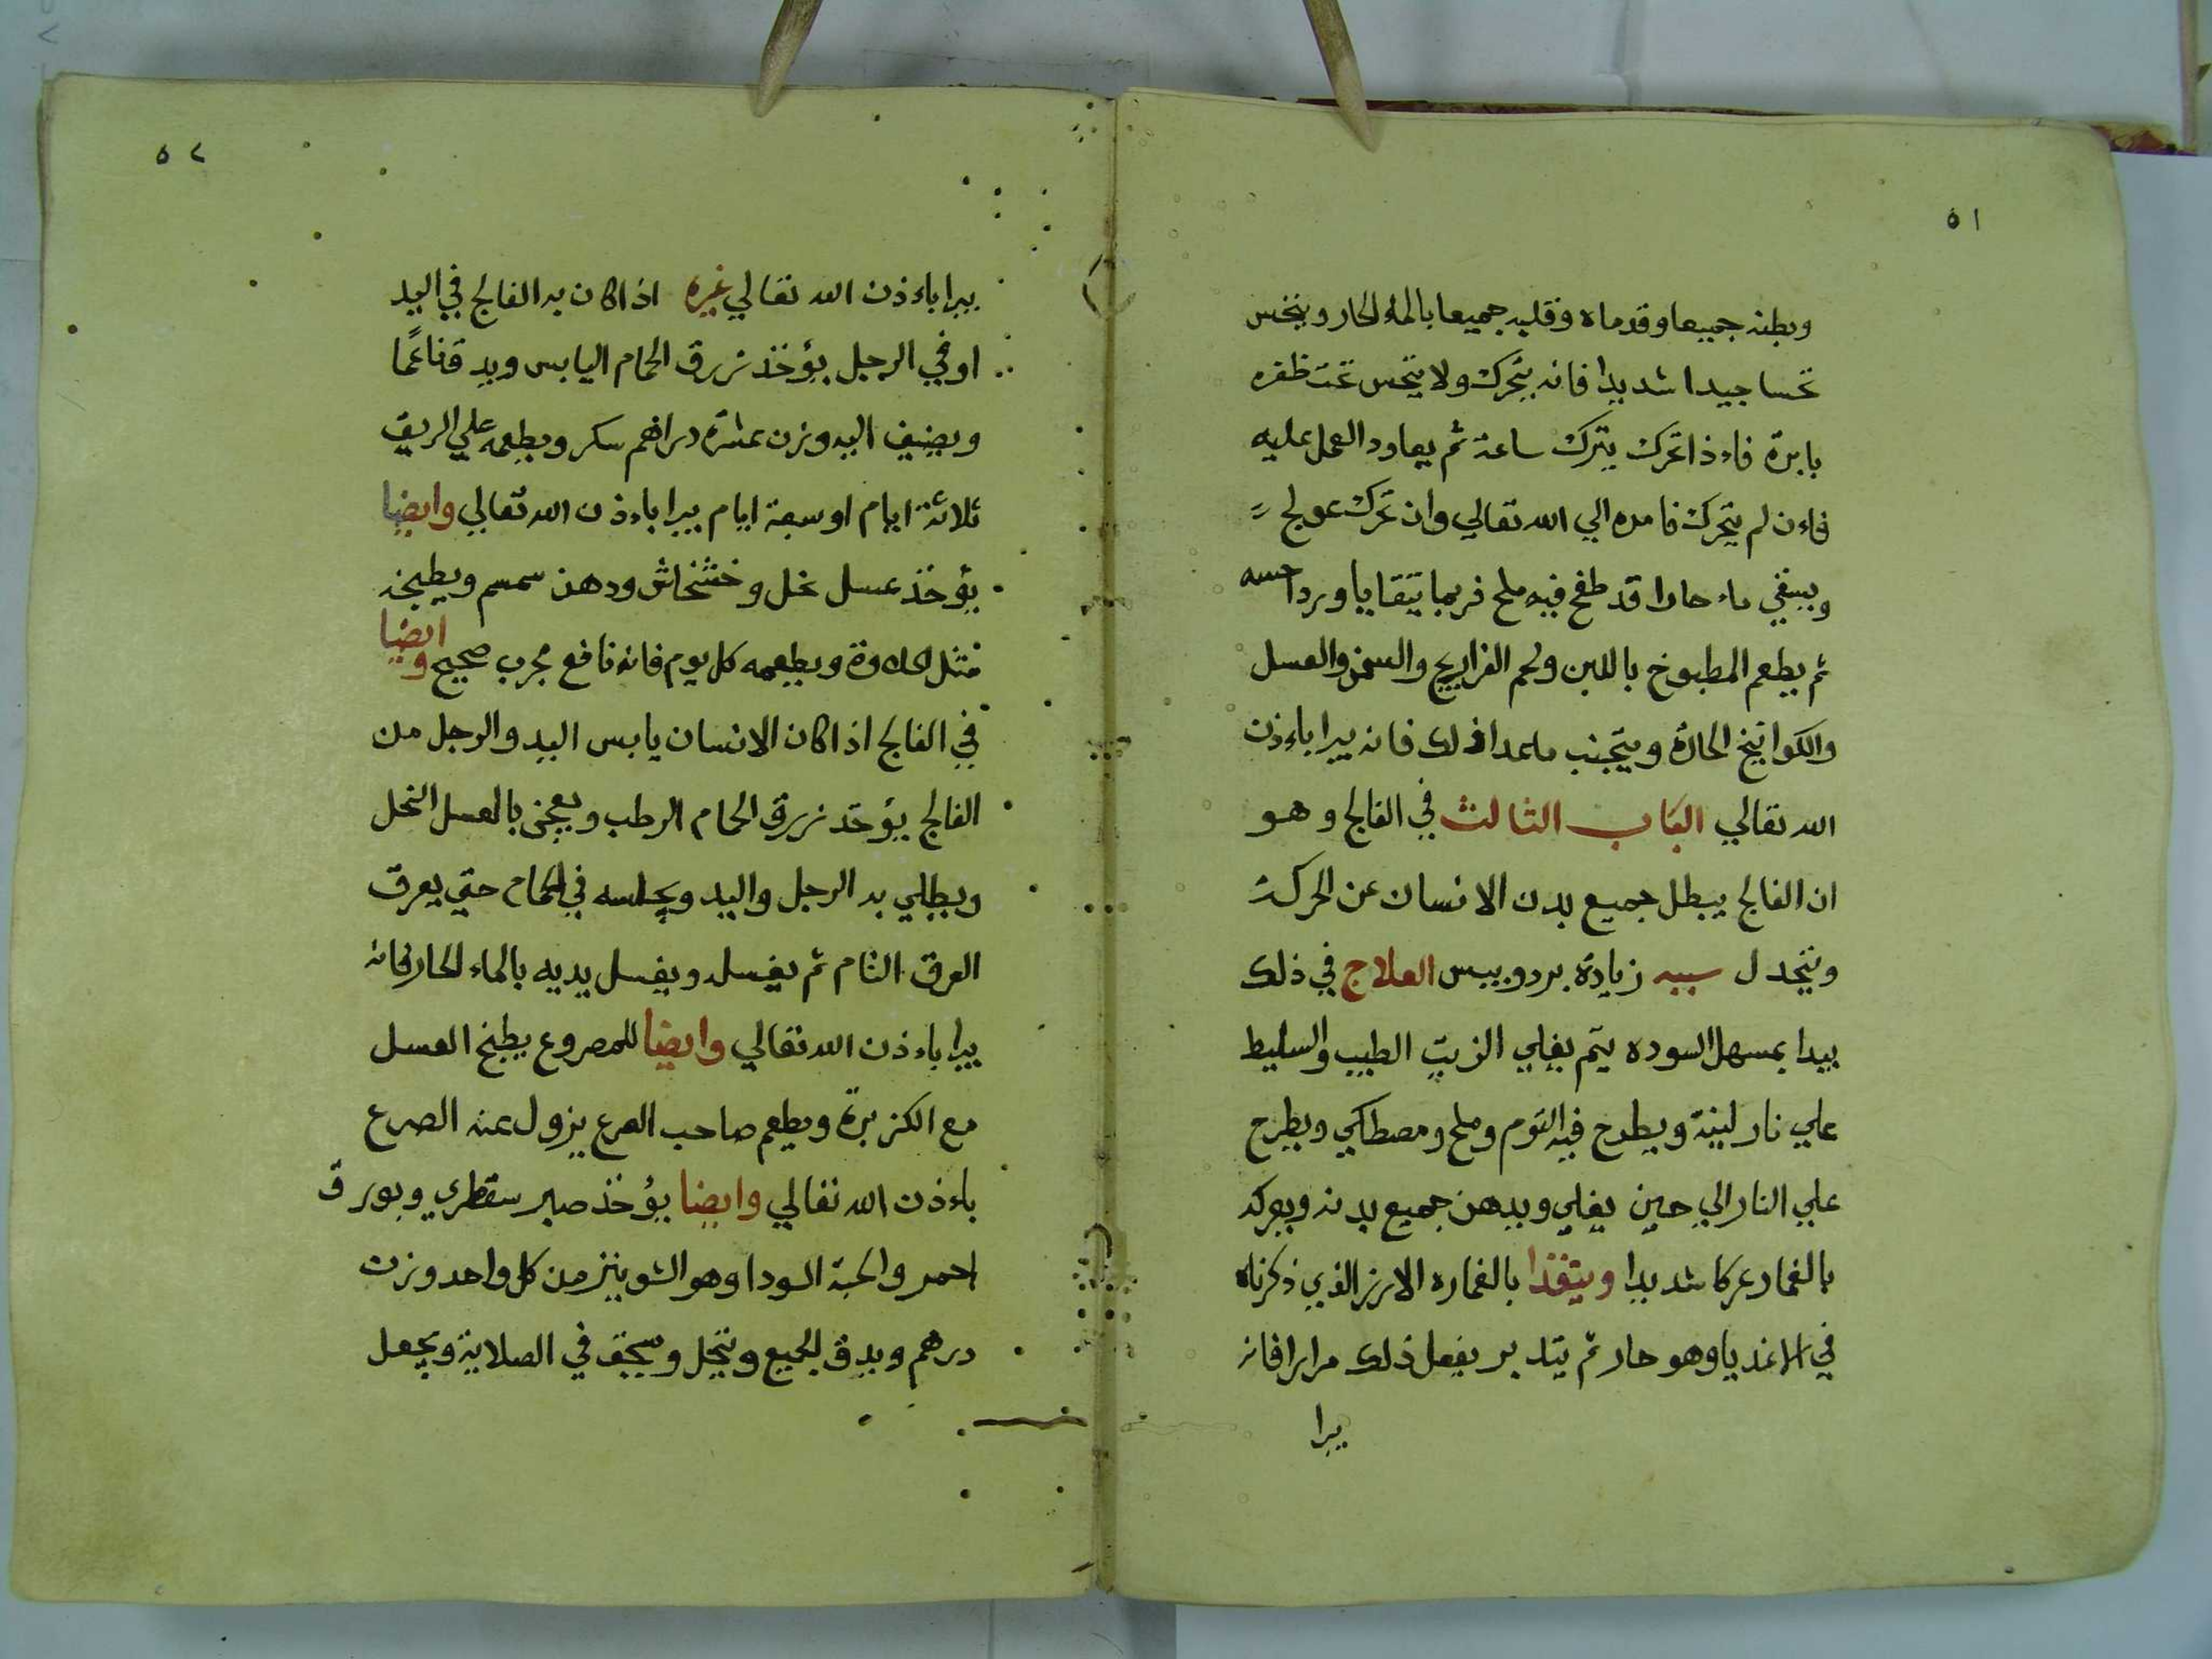 ٥١
وبطنه جميعا وقدماه وقلبه جميعا بالماء الحار وينخس
نخسا جيدا شديدا فانه يتحرك ولا ينخس تحت ظفره
بابرة فاءذا تحرك يترك ساعة ثم يعاود العمل عليه
فاءن لم يتحرك فامره الي الله تعالي وان تحرك عولج
ويسقي ماء حارا قد طفح فيه ملح فربما يتقايا ويرد احسه
ثم يطعم المطبوخ باللبن ولحم الفراريج والسمن والعسل
والكوانيخ الحارة ويتجنب ماعدا ذلك فانه يبرا باءذن
الله تعالي الباب الثالث في الفالج وهو
ان الفالج يبطل جميع بدن الانسان عن الحركة
ويتجدل سببه زيادة برد ويبس العلاج في ذلك
يبدا بمسهل السوده يتم يغلي الزيت الطيب والسليط
علي نار لينة ويطرح فيه الثوم وملح ومصطكي ويطرح
علي النار الي حين يغلي ويدهن جميع بدنه ويعركه
بالغمار عركا شديدا ويتغذا بالغماره الارزز الذي ذكرناه
في الاغذيا وهو حار ثم يتدبر يفعل ذلك مرارا فانه
يبرا
٥٢
يبرا باءذن الله تعالي غيره اذا كان به الفالج في اليد
او في الرجل يؤخذ زرق الحمام اليابس ويدق ناعما
ويضيف اليه وزن عشرة دراهم سكر ويطعمه علي الريق
ثلاثة ايام او سبعة ايام يبرا باءذن الله تعالي وايضا
يؤخذ عسل نحل وخشخاش ودهن سمسم ويطبخه
مثل الحلاوة ويطعمه كل يوم فانه نافع مجرب صحيح وايضا
في الفالج اذا كان الانسان يابس اليد والرجل من
الفالج يؤخذ زرق الحمام الرطب ويعجن بالعسل النحل
ويطلي به الرجل واليد ويجلسه في الحمام حتي يعرق
العرق التام ثم يغسله ويغسل يديه بالماء الحار فانه
يبرا باءذن الله تعالي وايضا للمصروع يطبخ العسل
مع الكزبرة ويطعم صاحب الصرع يزول عنه الصرع
باءذن الله تعالي وايضا يؤخذ صبر سقطري وبورق
احمر والحبة السودا وهو الشوينز من كل واحد وزن
درهم ويدق الجميع وينخل ويسحق في الصلاية ويجعل